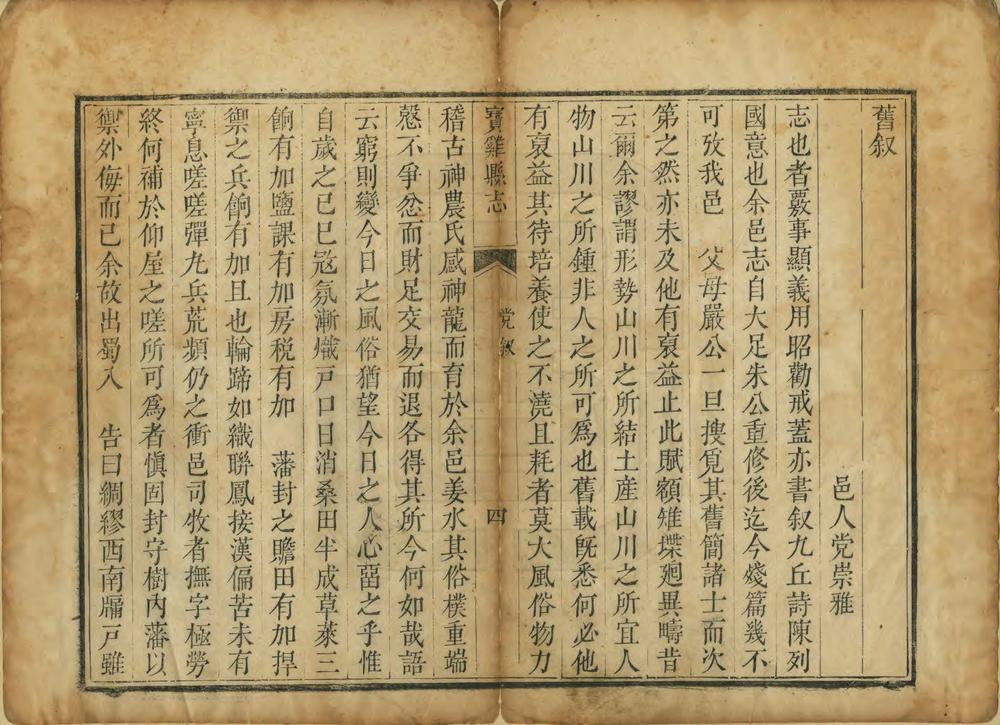 舊叙
邑人党崇雅
志也者覈事顯義用昭勸戒蓋亦書叙九丘詩陳列
國意也余邑志自大足朱公重修後迄今燹篇幾不
可攷我邑　父母嚴公一旦搜覓其舊簡諸士而次
第之然亦未及他有裒益止此賦額雉堞廻異疇昔
云爾余謬謂形勢山川之所結土産山川之所宜人
物山川之所鍾非人之所可爲也舊載旣悉何必他
有裒益其待培養使之不澆且耗者莫大風俗物力
寶雞縣志　党叙　四
稽古神農氏感神龍而育於余邑姜水其俗樸重端
慤不爭忿而財足交易而退各得其所今何如哉語
云窮則變今日之風俗猶望今日之人心啚之乎惟
自歲之已巳冦氛漸熾戸口日消桑田半成草萊三
餉有加鹽課有加房税有加　藩封之贍田有加捍
禦之兵餉有加且也輪蹄如織聯鳳接漢偏苦未有
寧息嗟嗟彈丸兵荒頻仍之衝邑司牧者撫字極勞
終何補於仰屋之嗟所可爲者愼固封守樹內藩以
禦外侮而已余故出蜀入　告曰綢繆西南牖戸雖